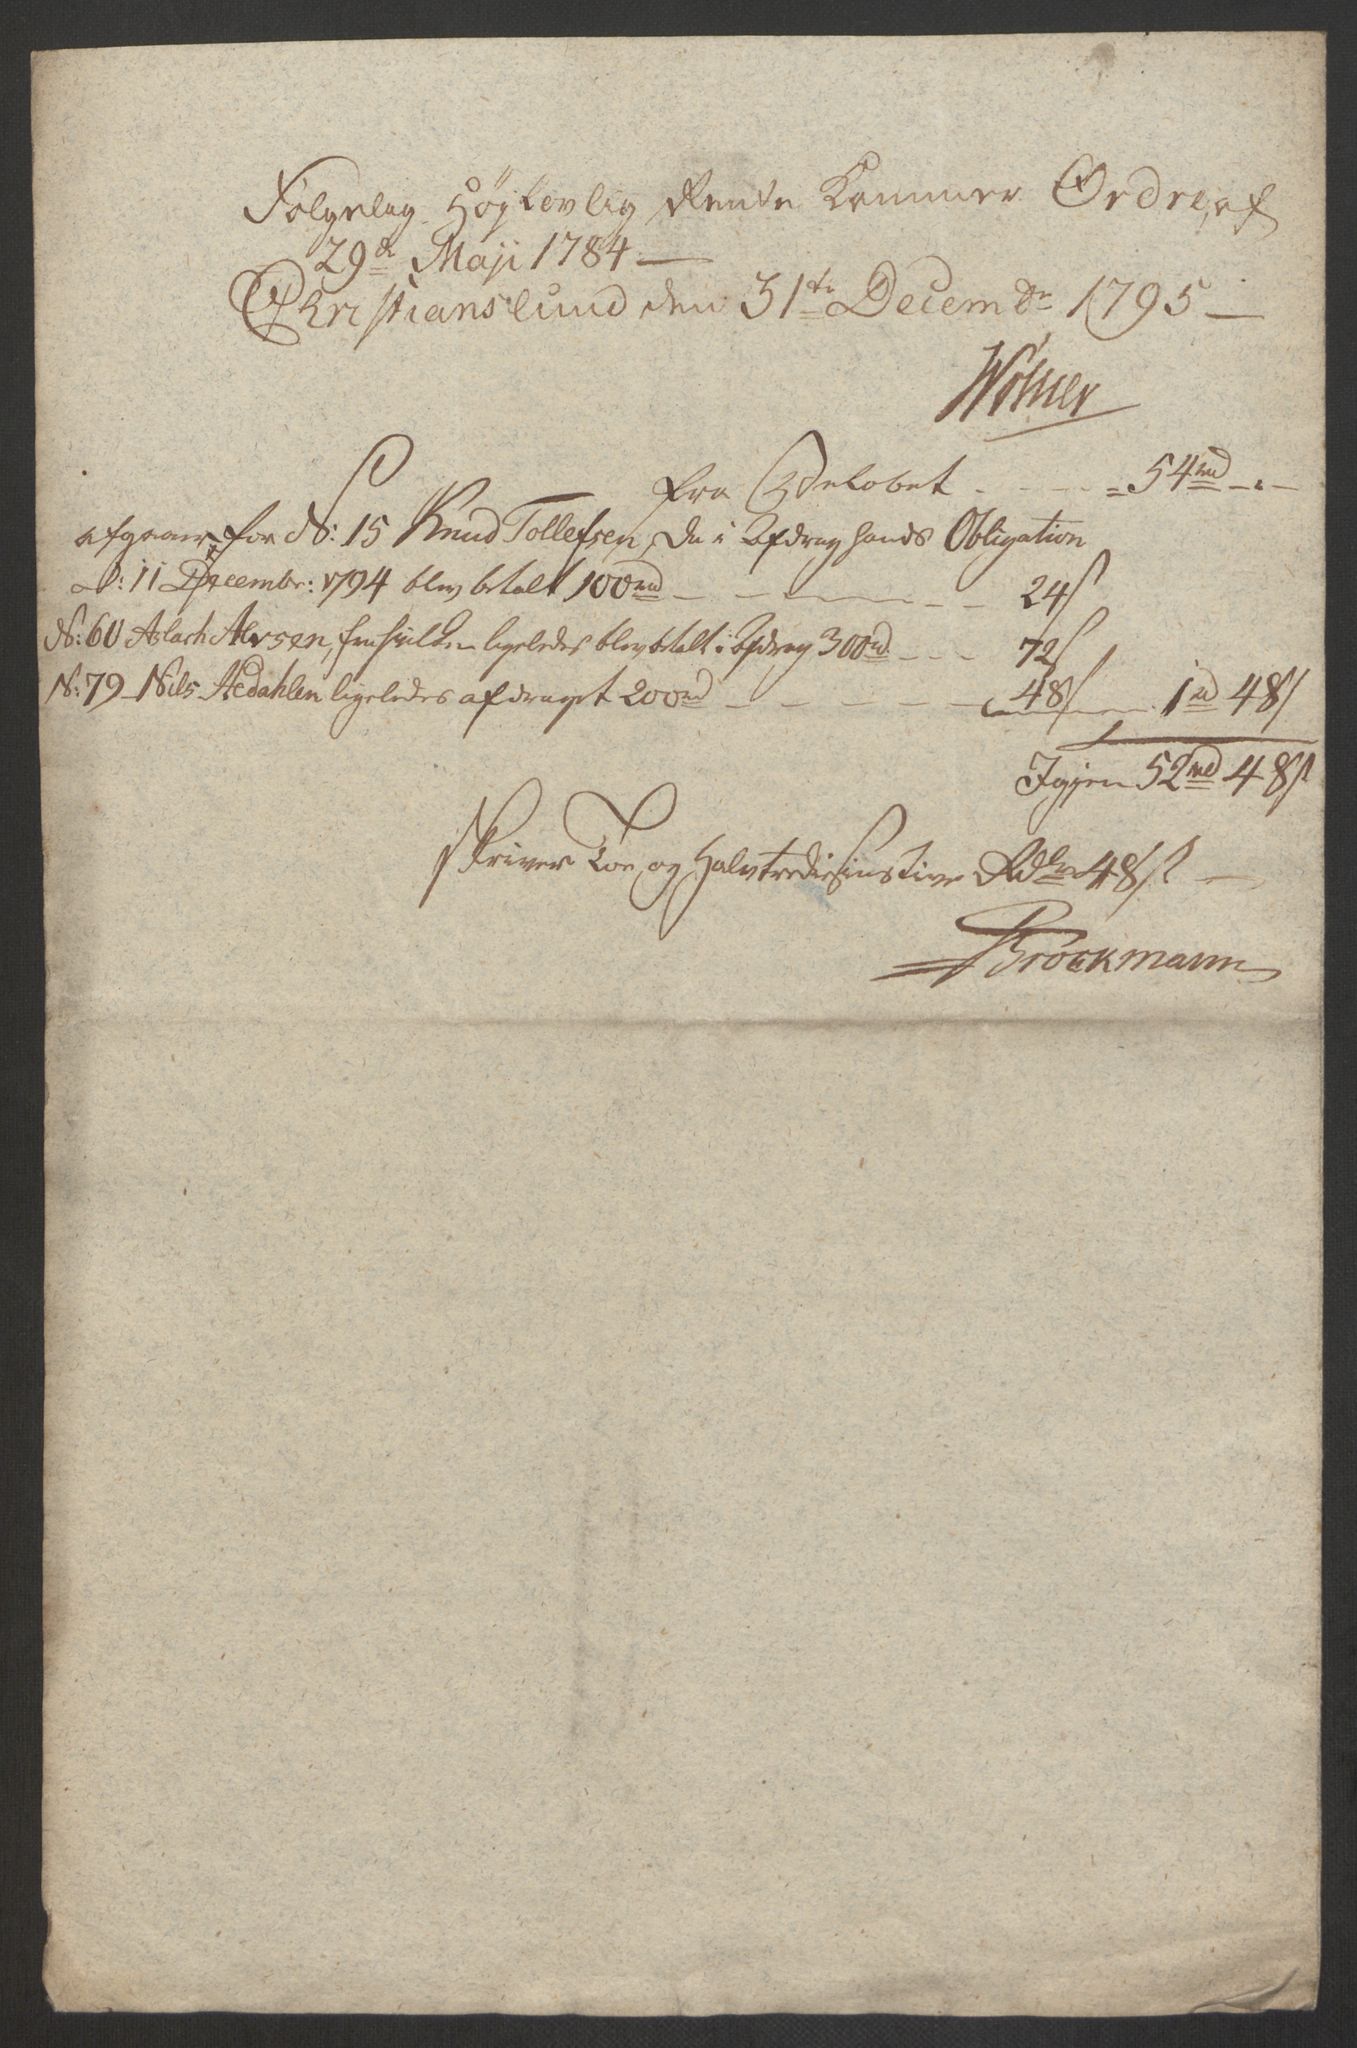 Følgelig Høylovlig Rente Kammer Ordre, af
29de Maji 1784
Christianslund den 31te Decembr 1795
Wölner
fra Beløbet 54rd
afgaaer for No: 15 Knud Tollefsen, da i Afdrag hands Obligation
d: 11 Decembr: 1794 blev betalt 100rd 24s
No: 60 Aslach Alvsen, for hvilken ligeledes blev betalt i Afdrag 300rd 72s
No: 79 Nils Aedahlen ligeledes afdraget 200rd 48s 1rd 48s
Igjen 52rd 48s
skriver Toe og Halvtredsinstive Rdlr 48s
Brockmann